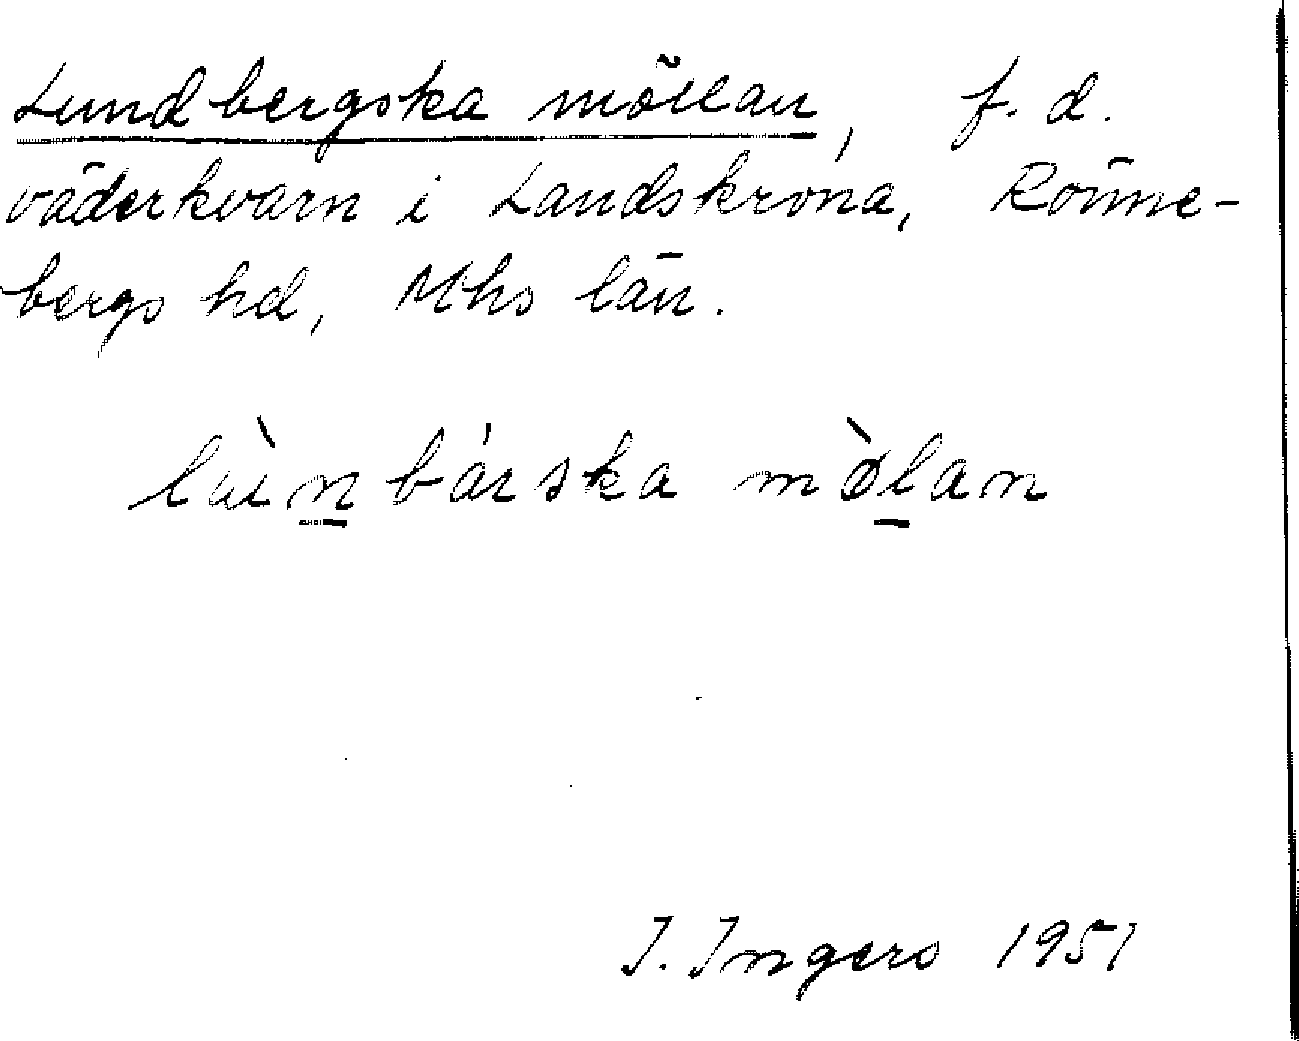 Lundbergska möllan, f.d.
väderkvarn i Landskrona, Rönne-
bergs hd, Mhs län.
lùnbárska mø̀lan
I. Ingers 1951